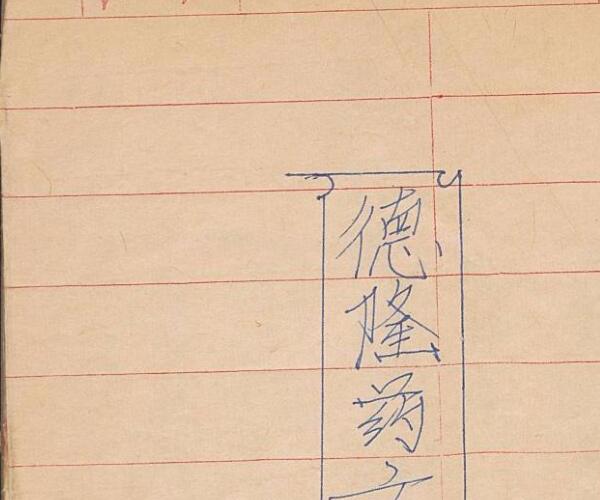 德隆药